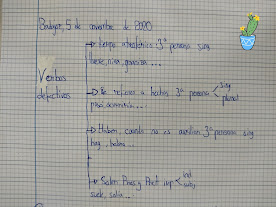 Badajoz, 5 de noviembre de 2020
tiempo atmosférico 3ª persona sing
llueve, nieva, graniza ...
Verbos
defectivos
Se refieren a hechos 3ª persona sing
plural
pasó, ...
Haber, cuando no es auxiliar 3ª persona sing
hay, había ...
Soler Pres y Pret imp ind
subj
suele, solía ...